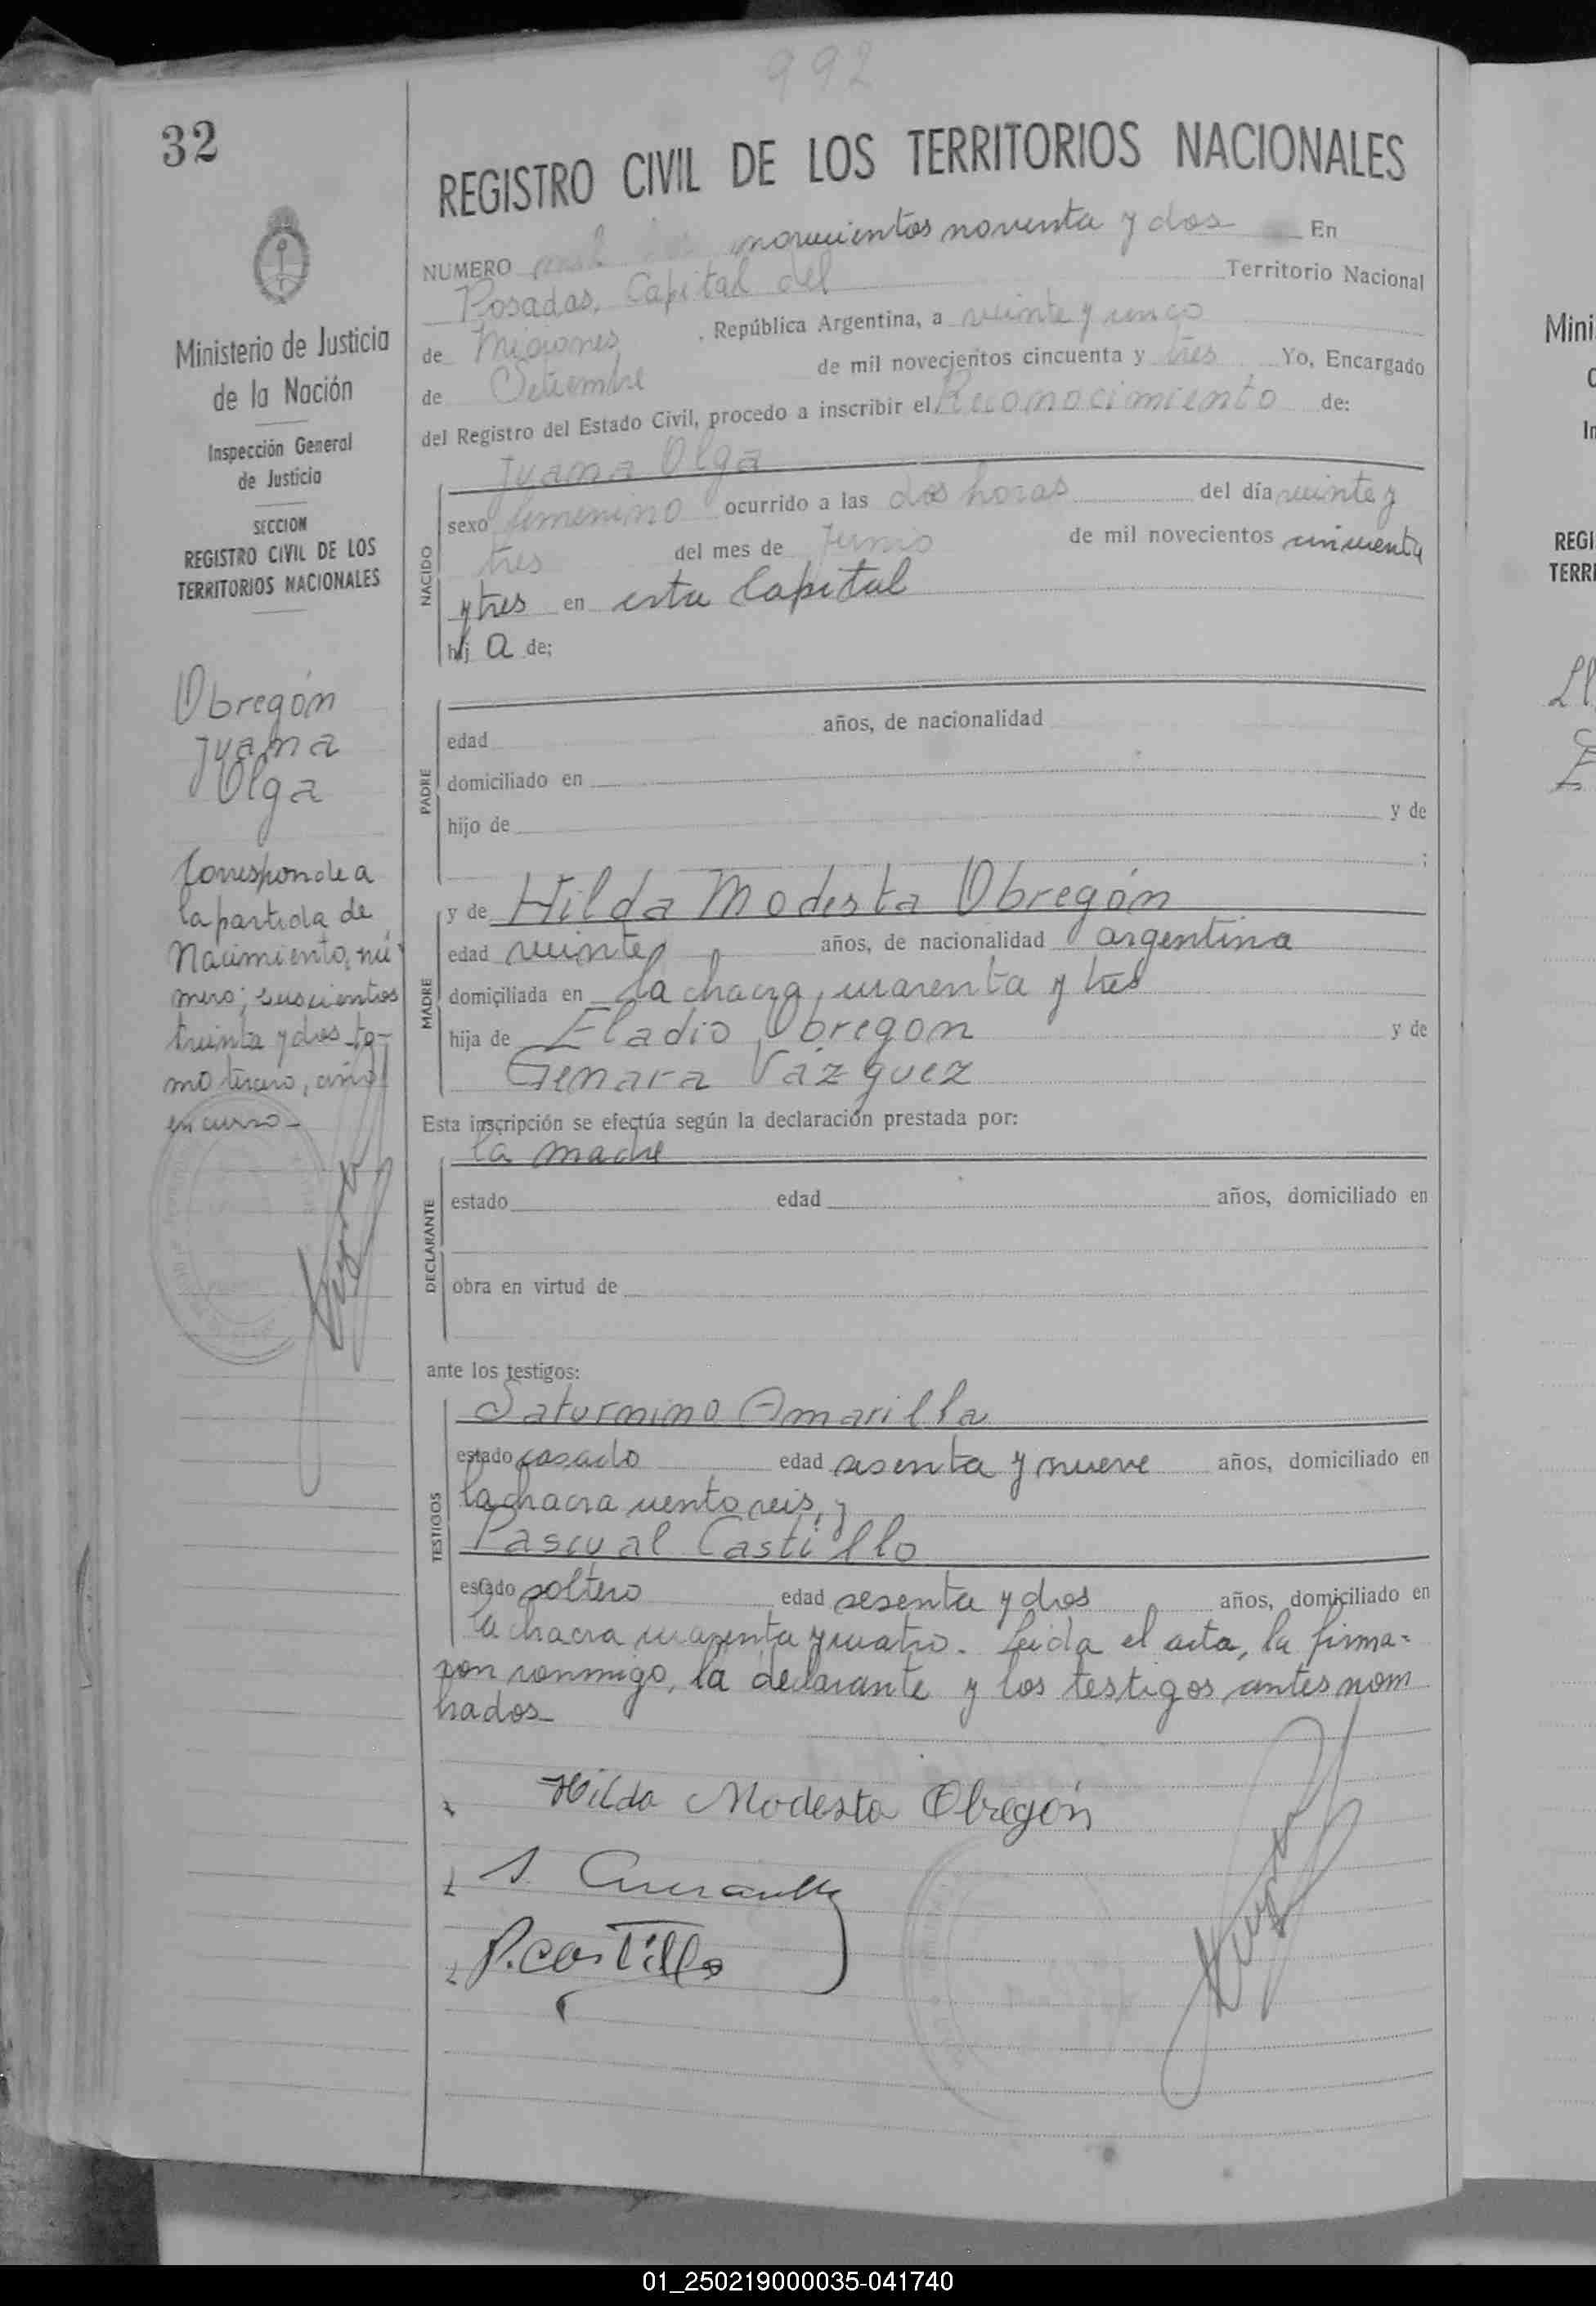 992
32
REGISTRO CIVIL DE LOS TERRITORIOS NACIONALES
NUMERO novecientos noventa y dos En
Posadas, Capital del Territorio Nacional
de Misiones, República Argentina, a veinte y cinco
de Setiembre de mil novecientos cincuenta y tres Yo, Encargado
del Registro del Estado Civil, procedo a inscribir el Reconocimiento de:
Juana Olga
NACIDO
sexo femenino ocurrido a las dos horas del día veinte y
tres del mes de Junio de mil novecientos cincuenta
y tres en esta Capital
hij a de;
PADRE
edad años, de nacionalidad
domiciliado en
hijo de y de
;
MADRE
y de Hilda Modesta Obregón
edad veinte años, de nacionalidad argentina
domiciliada en la chacra, cuarenta y tres
hija de Eladio Obregon y de
Genara Vázquez
Esta inscripción se efectúa según la declaración prestada por:
la madre
DECLARANTE
estado edad años, domiciliado en
obra en virtud de
ante los testigos:
TESTIGOS
Saturnino Amarilla
estado casado edad sesenta y nueve años, domiciliado en
la chacra ciento seis, y
Pascual Castillo
estado soltero edad sesenta y dos años, domiciliado en
la chacra cuarenta y cuatro. Leida el acta, la firma=
ron conmigo, la declarante y los testigos antes nom
brados_
Hilda Modesta Obregón
S. Amarilla
P. Castillo
Ministerio de Justicia
de la Nación
Inspección General
de Justicia
SECCION
REGISTRO CIVIL DE LOS
TERRITORIOS NACIONALES
Obregón
Juana
Olga
Corresponde a
la partida de
Nacimiento, nú-
mero; seiscientos
treinta y dos to-
mo tercero, año
en curso_
Mini
REGI
TERR
01_250219000035-041740